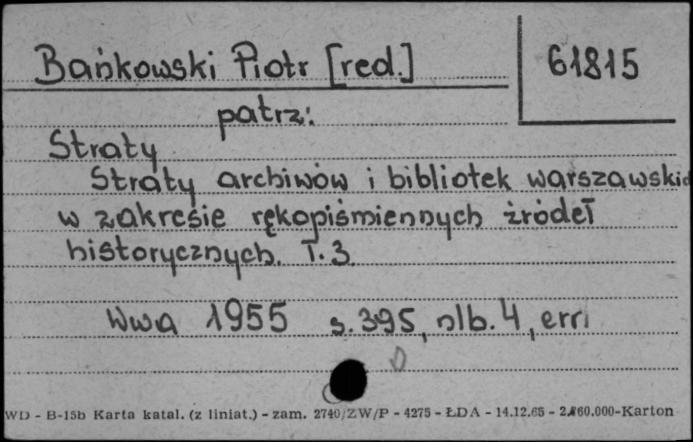 Bańkowski Piotr [red.] 61815
patrz:
Straty
Straty archiwów i bibliotek warszawskic
w zakresie rękopiśmiennych źródeł
historycznych. T. 3
Wwa 1955 s. 395, nlb. 4, err.
WD - B-15b Karta katal. (z liniat.) - zam. 2740/ZW/P - 4275 - ŁDA - 14.12.65 - 2.860.000-Karton